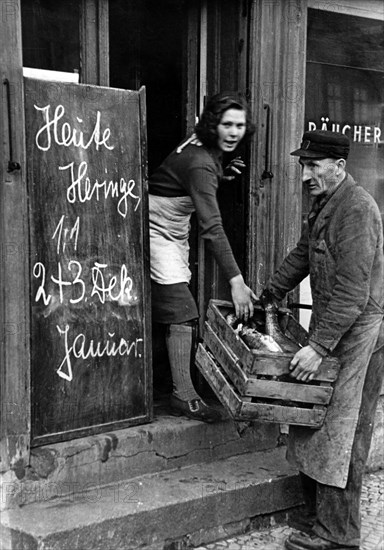 Heute
Heringe,
1:1
2+3. Dek.
Januar.
RÄUCHER